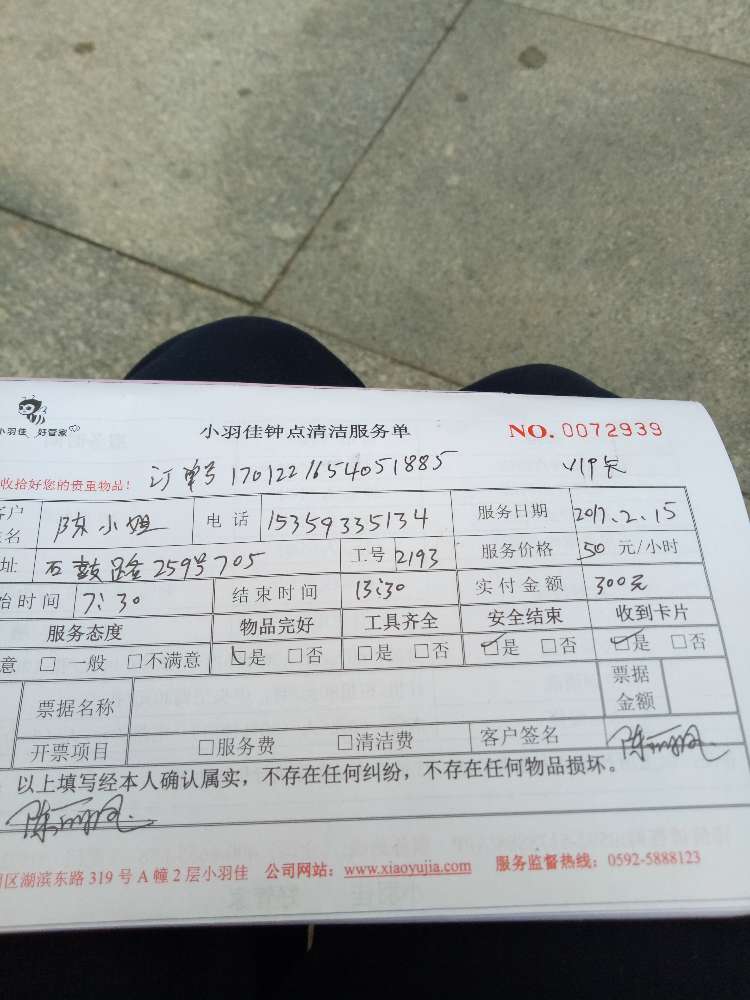 小羽佳 好管家
小羽佳钟点清洁服务单 NO. 0072939
收拾好您的贵重物品! 订单号 170122165405188​5 VIP卡
客户 陈小姐 电话 15359335134 服务日期 2017.2.15
址 石鼓路259号705 工号 2193 服务价格 50 元/小时
始时间 7:30 结束时间 13:30 实付金额 300元
服务态度 物品完好 工具齐全 安全结束 收到卡片
意 □ 一般 □不满意 □是 □否 □是 □否 □是 □否 □是 □否
票据名称 票据金额
开票项目 □服务费 □清洁费 客户签名
以上填写经本人确认属实,不存在任何纠纷,不存在任何物品损坏。
区湖滨东路 319 号 A 幢 2 层小羽佳 公司网站:www.xiaoyujia.com 服务监督热线:0592-5888123